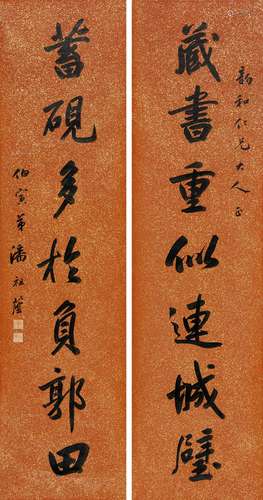 藏書重似連城璧
韵和仁兄大人正
蓄硯多於負郭田
伯寅弟潘祖蔭